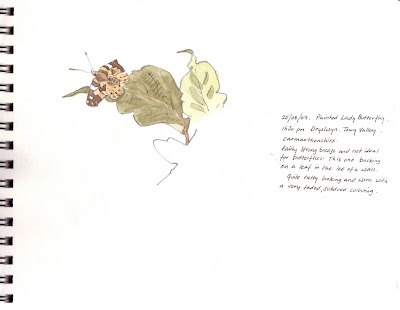 25/08/09. Painted Lady Butterfly
1630 pm Dryslwyn. Towy Valley.
Carmarthenshire.
Fairly strong breeze and not ideal
for butterflies. This one basking
on a leaf in the lee of a wall.
Quite tatty looking and worn with
a very faded, subdued colouring.